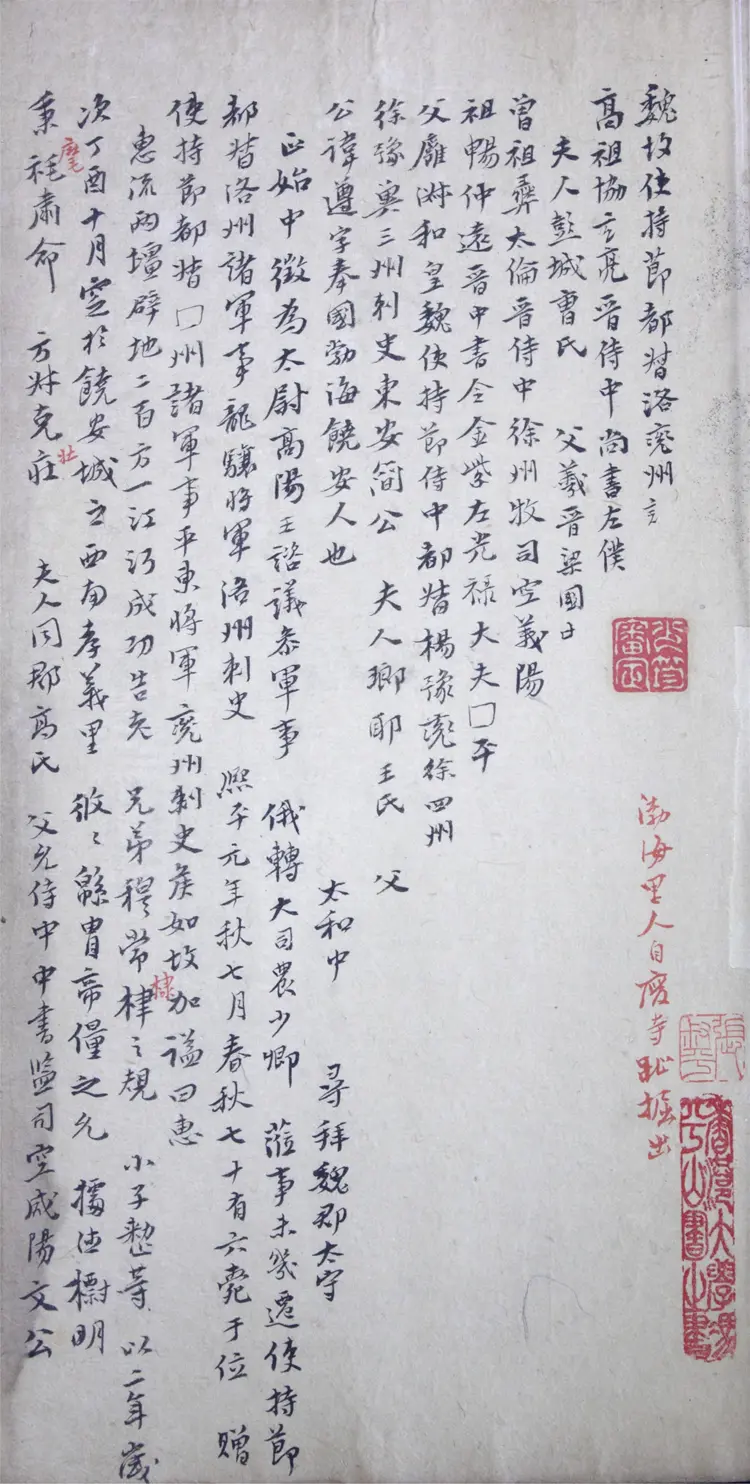 魏故使持節都督洛兗州刾
高祖協玄亮晉侍中尚書左僕
夫人彭城曹氏 父羲晉梁國
曾祖彝太倫晉侍中徐州牧司空義陽
祖暢仲遠晉中書令金紫左光祿大夫囗平
父雍淑和皇魏使持節侍中都督楊豫兗徐四州
徐豫冀三州刺史東安簡公 夫人瑯耶王氏 父
公諱遵字奉國勃海饒安人也 太和中 尋拜魏郡太守
正始中徵為太尉高陽王諮議叅軍事 俄轉大司農少卿 蒞事未幾遷使持節
都督洛州諸軍事龍驤將軍洛州刺史 熙平元年秋七月春秋七十有六薨于位 贈
使持節都督囗州諸軍事平東將軍兗州刺史矦如故加謚曰惠
惠流兩壃辟地二百方一江沔成功告老 兄弟穆常棣之規 小子整等 以二年歲
棣
次丁酉十月窆於饒安城之西南孝義里 攸攸緜冑帝僵之允 擂德標明
秉旄肅命 方
旄
克莊 夫人同郡高氏 父允侍中中書監司空咸陽文公
壯
渤海里人自廢寺址掘出